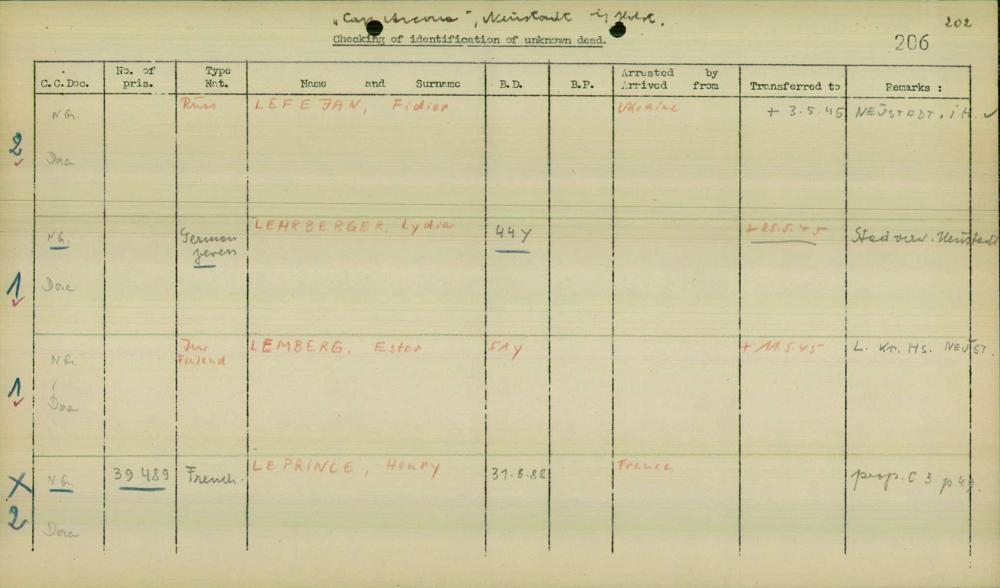 „Cap Arcona", Neustadt i/Holst.
202
Checking of identification of unknown dead.
206
C.C.Doc. No. of pris. Type Nat. Name and Surname B.D. B.P. Arrested by Arrived from Transferred to Remarks :
2 NGr. Dora Russ LEFEJAN, Fidior Ukraine + 3.5.45 NEUSTADT, i H. ✓
1 NG. Dora German LEHRBERGER, Lydia 44y + 25.5.45 Neustadt
1 NG. Dora LEMBERG, Ester 51y + 11.5.45 L. Kr. Hs. NEUST.
X 2 NG. Dora 39489 French. LEPRINCE, Henry France C 3. p 49.